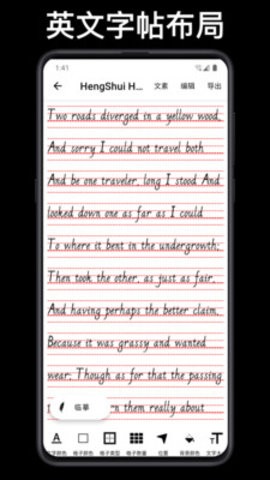 英文字帖布局
1:41
HengShui H... 文素 编辑 导出
Two roads diverged in a yellow wood,
And sorry I could not travel both
And be one traveler, long I stood And
looked down one as far as I could
To where it bent in the undergrowth;
Then took the other, as just as fair,
And having perhaps the better claim,
Because it was grassy and wanted
wear; Though as for that the passing
临摹 rn them really about
字颜色 格子颜色 格子类型 格子数量 位置 背景颜色 文字大